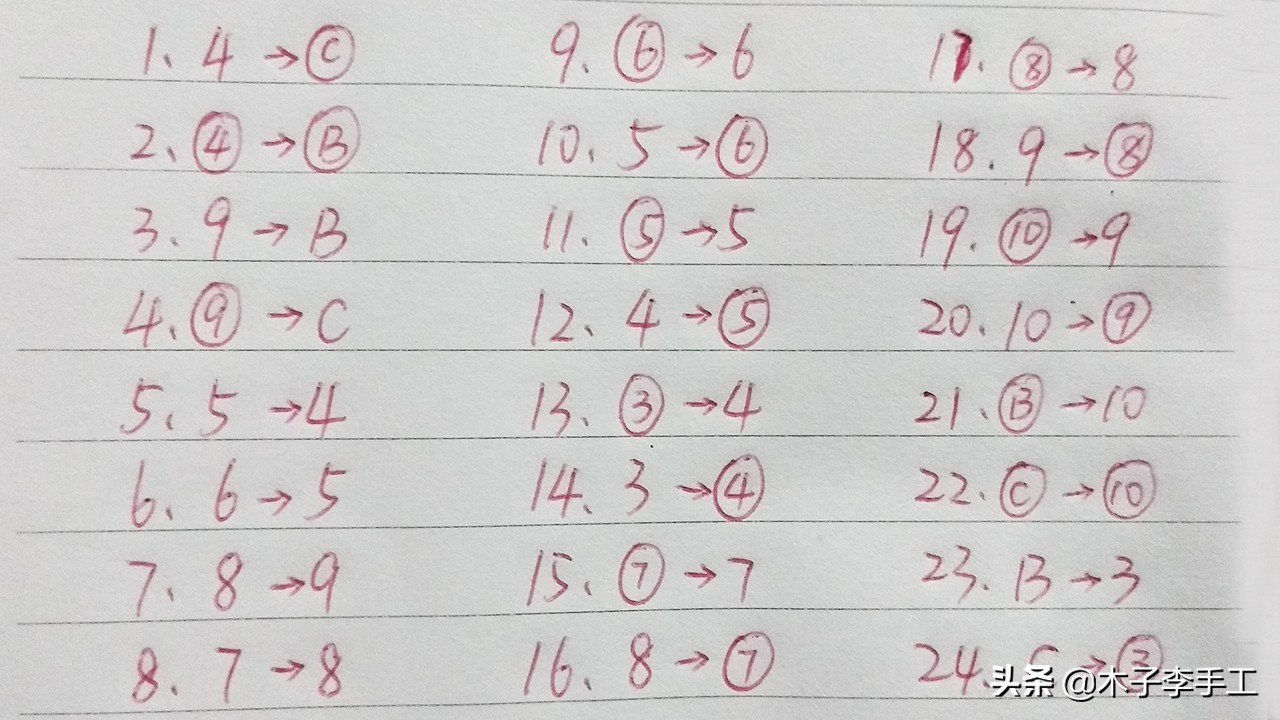 1、4→Ⓒ
2、④→Ⓑ
3、9→B
4、⑨→C
5、5→4
6、6→5
7、8→9
8、7→8
9、⑥→6
10、5→⑥
11、⑤→5
12、4→⑤
13、③→4
14、3→④
15、⑦→7
16、8→⑦
17、⑧→8
18.9→⑧
19.⑩→9
20.10→⑨
21.Ⓑ→10
22.Ⓒ→⑩
23.B→3
24.
头条 @木子李手工